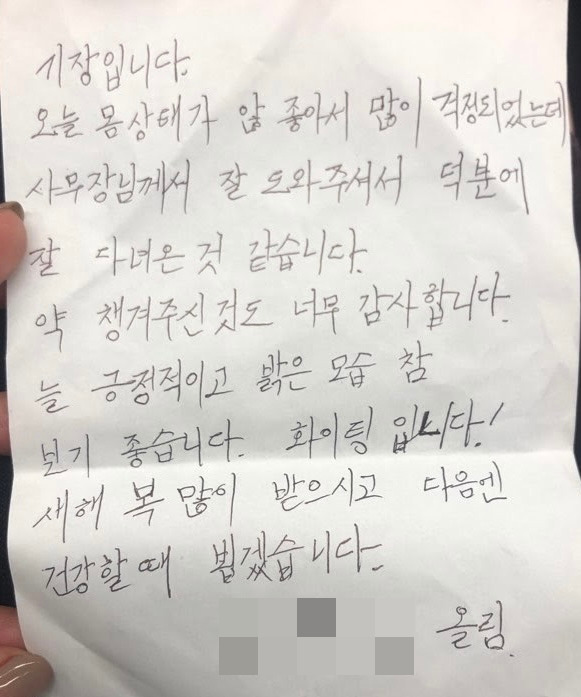 기장입니다.
오늘 몸상태가 않 좋아서 많이 걱정되었는데
사무장님께서 잘 도와주셔서 덕분에
잘 다녀온 것 같습니다.
약 챙겨주신것도 너무 감사합니다.
늘 긍정적이고 밝은 모습 참
보기 좋습니다. 화이팅 입니다!
새해 복 많이 받으시고 다음엔
건강할때 뵙겠습니다.
올림.